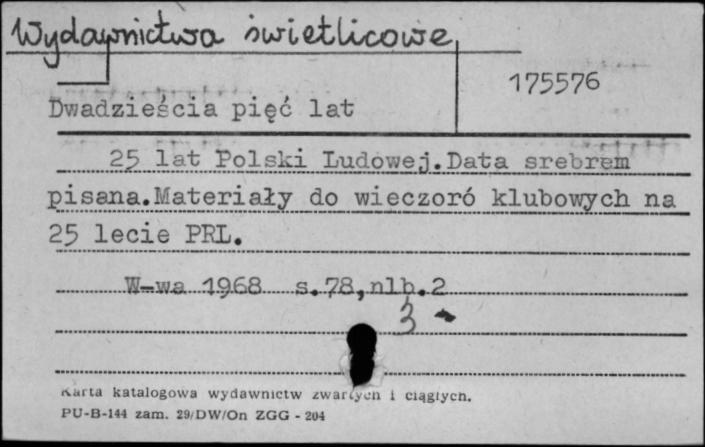 Wydawnictwa świetlicowe
175576
Dwadzieścia pięć lat
25 lat Polski Ludowej.Data srebrem
pisana.Materiały do wieczoró klubowych na
25 lecie PRL.
W-wa 1968 s.78,nlb.2
3
Karta katalogowa wydawnictw zwartych i ciągłych.
PU-B-144 zam. 29/DW/On ZGG - 204